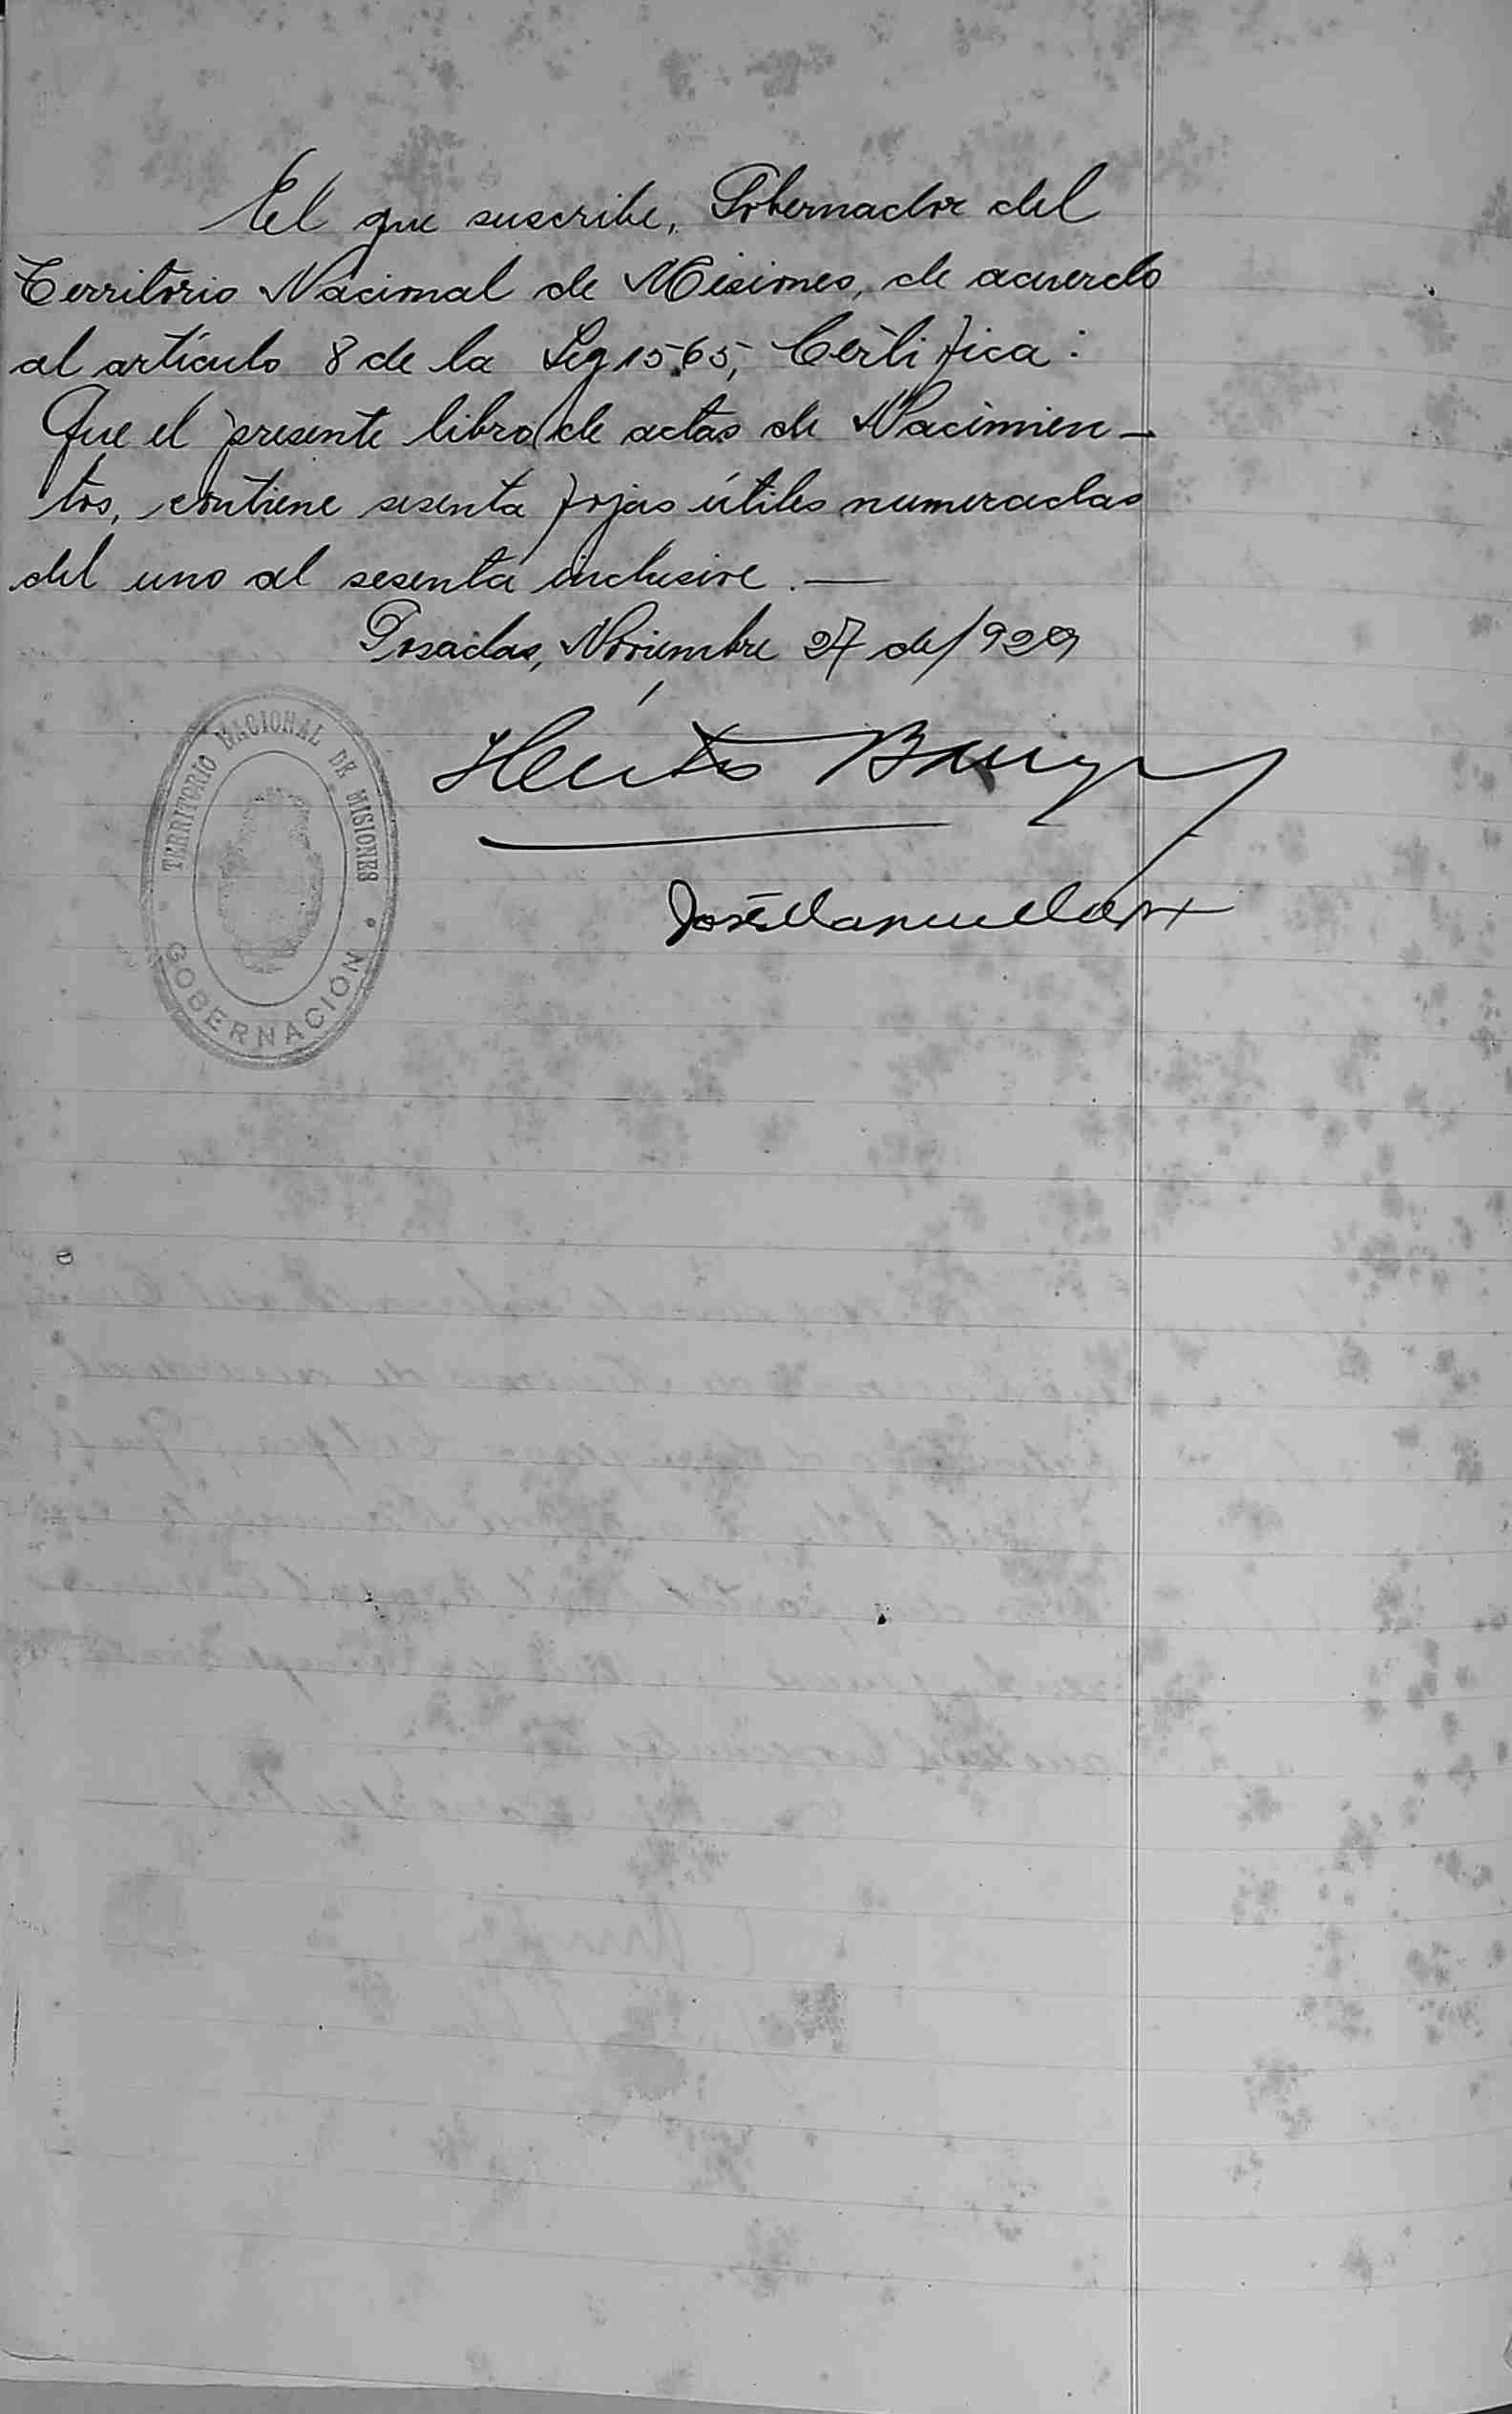 El que suscribe, Gobernador del
Territorio Nacional de Misiones, de acuerdo
al artículo 8 de la Ley 1565, Certifica:
Que el presente libro de actas de Nacimien-
tos, contiene sesenta fojas útiles numeradas
del uno al sesenta inclusive.—
Posadas, Noviembre 27 de/929
TERRITORIO NACIONAL DE MISIONES
GOBERNACIÓN
Héctor
José Manuel